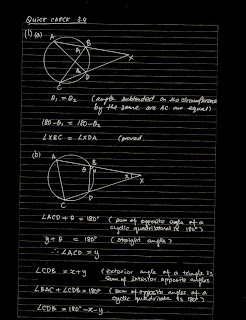 Quick check 3.4
(1) (a)
A
B
X
C
D
θ₁ = θ₂ (angle subtended on the circumference
by the same arc AC are equal)
180 - θ₁ = 180 - θ₂
∠XBC = ∠XDA (proved.
(b)
A
B
θ
y
X
C
D
∠ACD + θ = 180° (sum of opposite angle of a
cyclic quadrilateral is 180°)
y + θ = 180° (straight angle)
∴ ∠ACD = y
∠CDB = x + y (exterior angle of a triangle is
sum of interior opposite angles
∠BAC + ∠CDB = 180° (sum of opposite angles of a
cyclic quadrilateral is 180°)
∠CDB = 180° - x - y